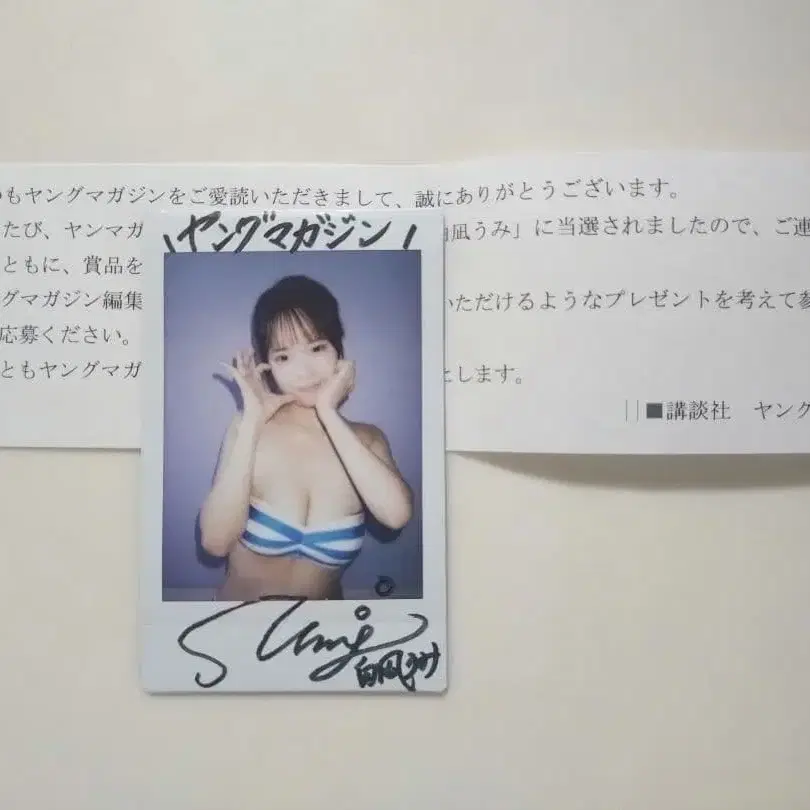 もヤングマガジンをご愛読いただきまして、誠にありがとうございます。
たび、ヤンマガ
凪うみ」に当選されましたので、ご連
ともに、賞品を
グマガジン編集
いただけるようなプレゼントを考えて参
応募ください。
ともヤングマガ
とします。
||■講談社 ヤング
\ヤングマガジン/
Umi
白凪うみ